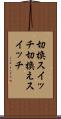 切換スイッ
チ切換えス
イッチ